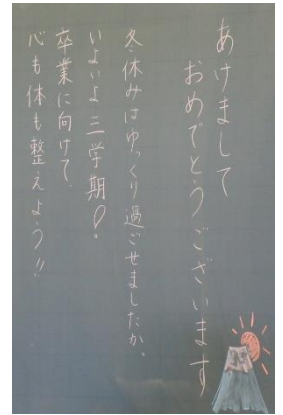 あけまして
おめでとうございます
冬休みはゆっくり過ごせましたか。
いよいよ三学期!
卒業に向けて、
心も体も整えよう!!